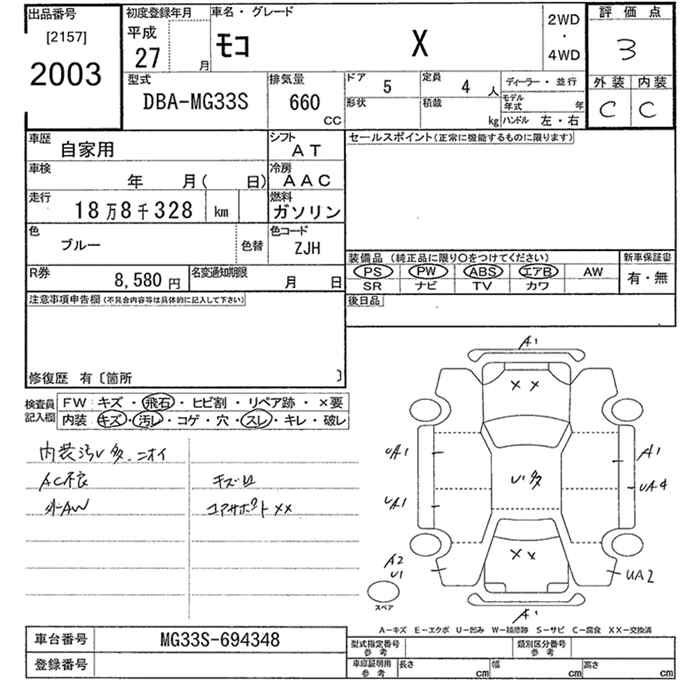 出品番号
[2157]
2003
初度登録年月
平成
27 月
車名・グレード
モコ X
2WD
・
4WD
評価点
3
外装 内装
C C
型式
DBA-MG33S
排気量
660
CC
ドア 5
定員 4 人
ディーラー・並行
形状
積載 kg
モデル年式 年
ハンドル 左・右
車歴
自家用
シフト
AT
車検
年 月( 日)
冷房
AAC
走行
18万8千328 km
燃料
ガソリン
色
ブルー
色替
色コード
ZJH
R券
8,580 円
名変通知期限
月 日
セールスポイント(正常に機能するものに限ります)
装備品 (純正品に限り○をつけてください)
新車保証書
PS PW ABS エアB AW
有・無
SR ナビ TV カワ
後日品
注意事項申告欄 (不具合内容等は具体的に記入して下さい)
修復歴 有〔箇所 〕
検査員
記入欄
FW キズ・飛石・ヒビ割・リペア跡・×要
内装 キズ・汚レ・コゲ・穴・スレ・キレ・破レ
内装汚レ多、ニオイ
AC不良 キズ凹
外AW コアサポート××
A1
××
UA1
A1
UA1
UA4
い多
××
A2
U1
UA2
スペア
A1
A-キズ E-エクボ U-凹み W-補修跡 S-サビ C-腐食 XX-交換済
車台番号
MG33S-694348
登録番号
型式指定番号
参考
類別区分番号
参考
車庫証明用
参考
長さ cm
幅 cm
高さ cm